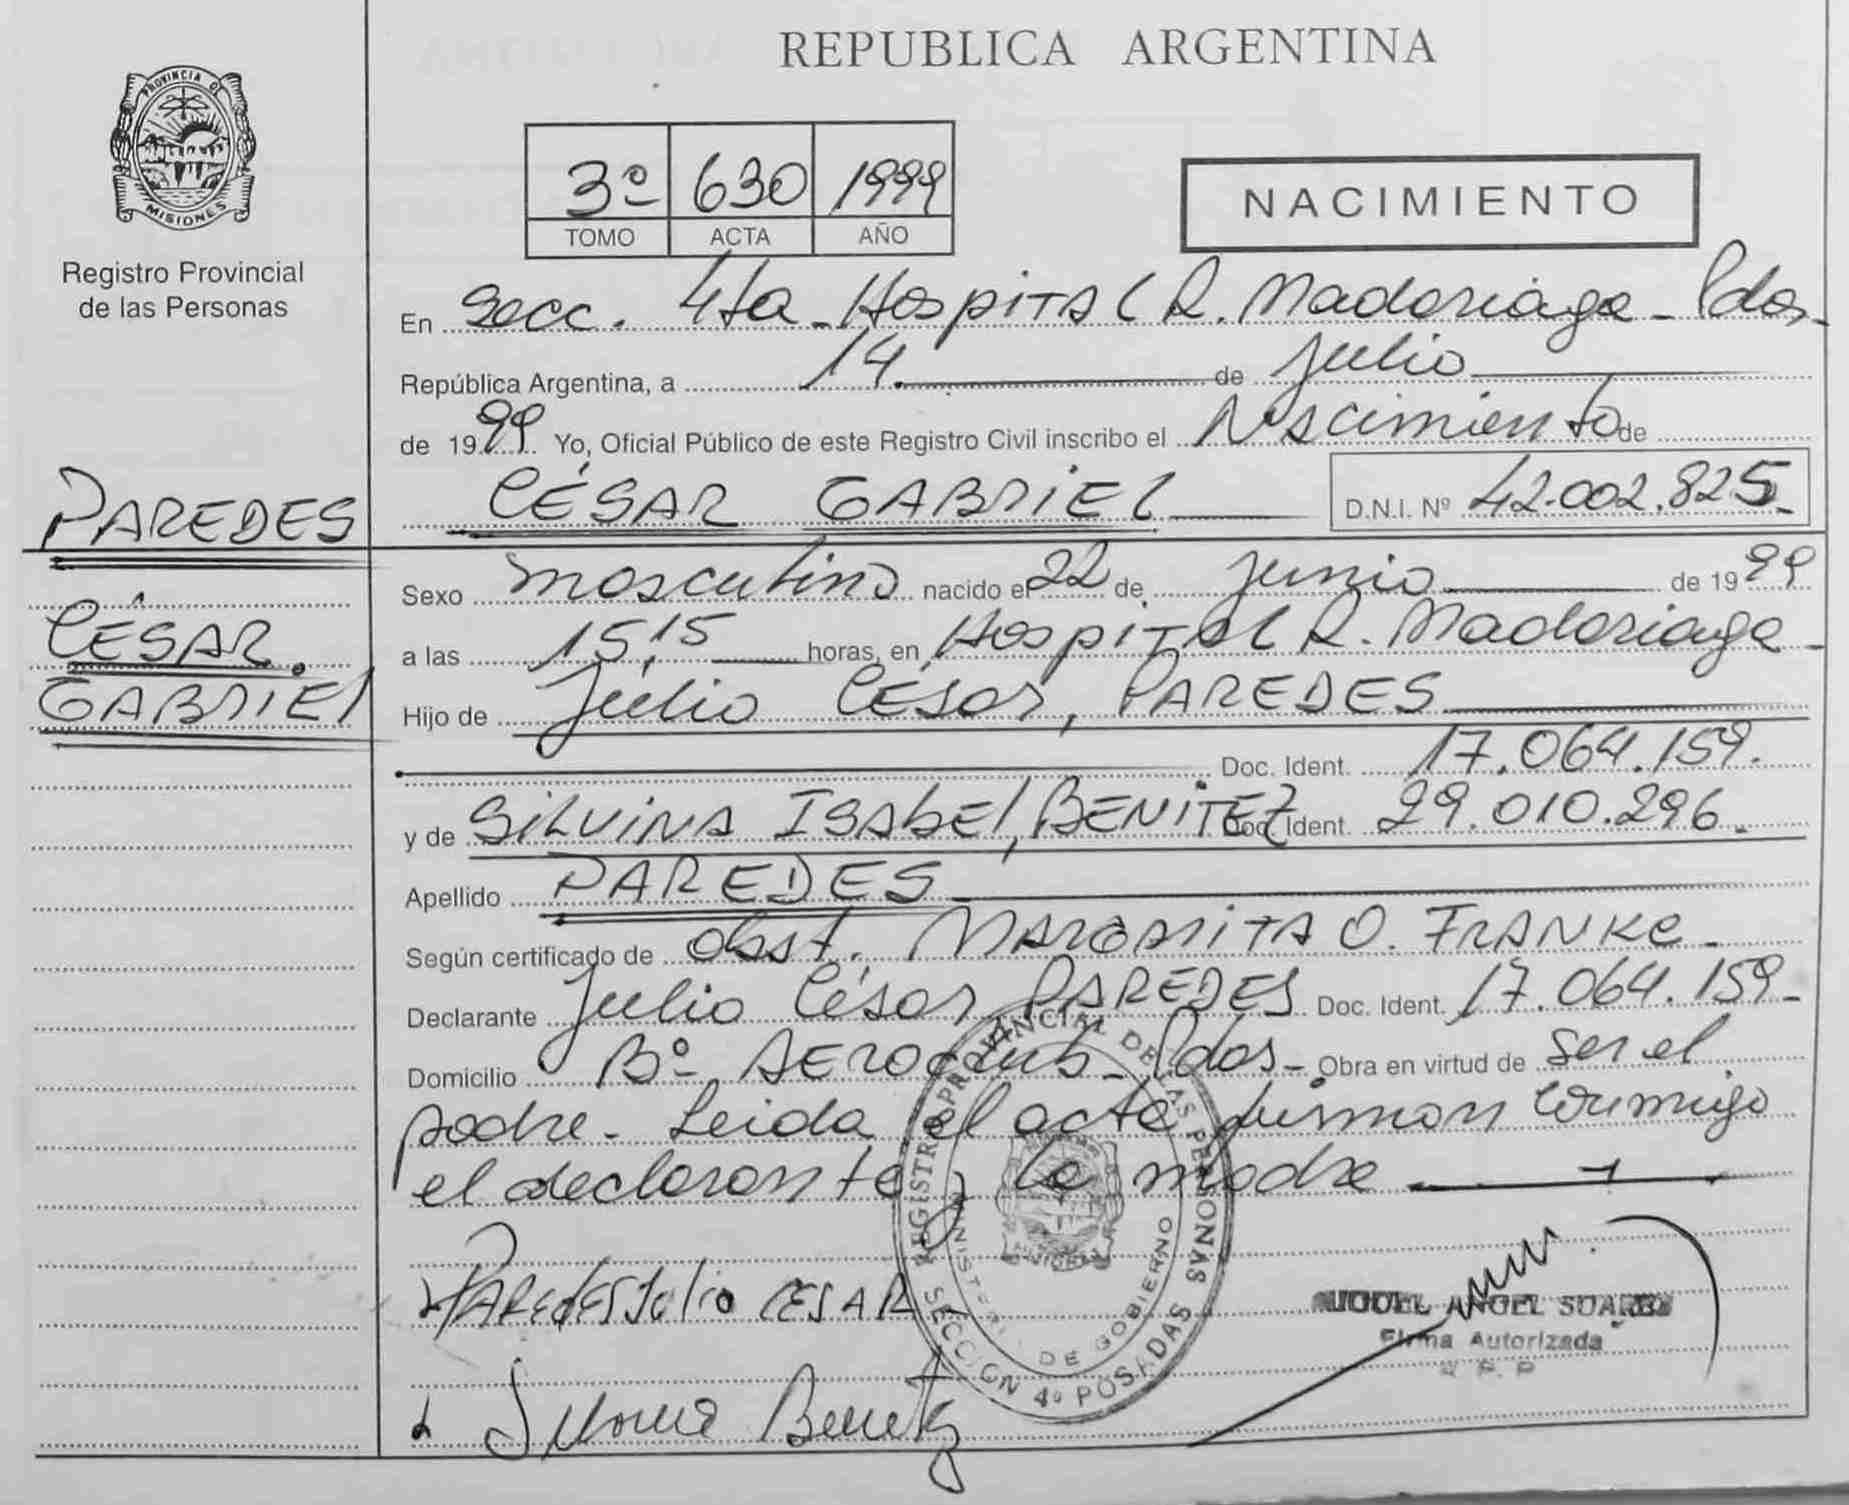 REPUBLICA ARGENTINA
PROVINCIA DE
MISIONES
Registro Provincial
de las Personas
3º 630 1999
TOMO ACTA AÑO
NACIMIENTO
En Secc. 4ta - Hospital R. Madariaga - Pdas -
República Argentina, a 14 de Julio
de 1999 Yo, Oficial Público de este Registro Civil inscribo el Nacimiento de
CÉSAR GABRIEL D.N.I. Nº 42.002.825
PAREDES
CÉSAR
GABRIEL
Sexo masculino nacido el 22 de junio de 1999
a las 15,15 horas, en Hospital R. Madariaga -
Hijo de Julio César, PAREDES
Doc. Ident. 17.064.159.
y de SILVINA ISABEL, BENITEZ Doc. Ident. 29.010.296.
Apellido PAREDES
Según certificado de obst. MARGARITA O. FRANKE -
Declarante Julio César PAREDES Doc. Ident. 17.064.159 -
Domicilio Bº AEROCLUB - Pdas - Obra en virtud de ser el
padre - Leida el acta firman conmigo
el declarante y la madre
PAREDES Julio CESAR
MIGUEL ANGEL SUAREZ
Firma Autorizada
R. P. P
Silvina Benitez
REGISTRO PROVINCIAL DE LAS PERSONAS
SECCION 4º POSADAS
MINISTERIO DE GOBIERNO
MISIONES